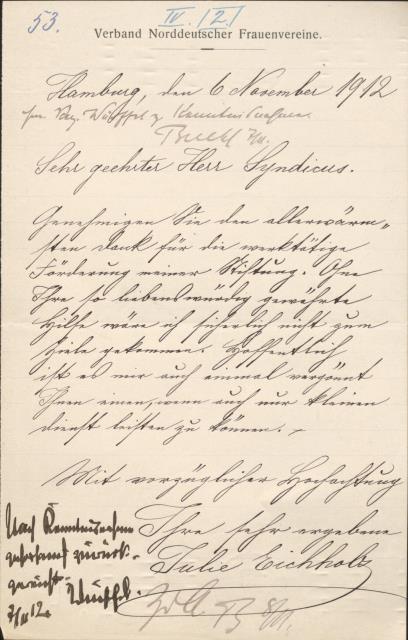 53.
IV. [2.]
Verband Norddeutscher Frauenvereine.
Hamburg, den 6 November 1912
Herrn Wüchtel z. Kenntnisnahme.
7/11.
Sehr geehrter Herr Syndicus.
Genehmigen Sie den allerwärm„
sten Dank für die werktätige
Förderung meiner Stiftung. Ohne
Ihre so liebenswürdig gewährte
Hilfe wäre ich sicherlich nicht zum
Ziele gekommen. Hoffentlich
ist es mir auch einmal vergönnt
Ihnen einen, wenn auch nur kleinen
Dienst leisten zu können. –
Mit vorzüglicher Hochachtung
Ihre sehr ergebene
Julie Eichholz
Nach Kenntnisnahme
gehorsamst zurück-
gereicht.
7/11 12.
Z. d. A. B 8/11.